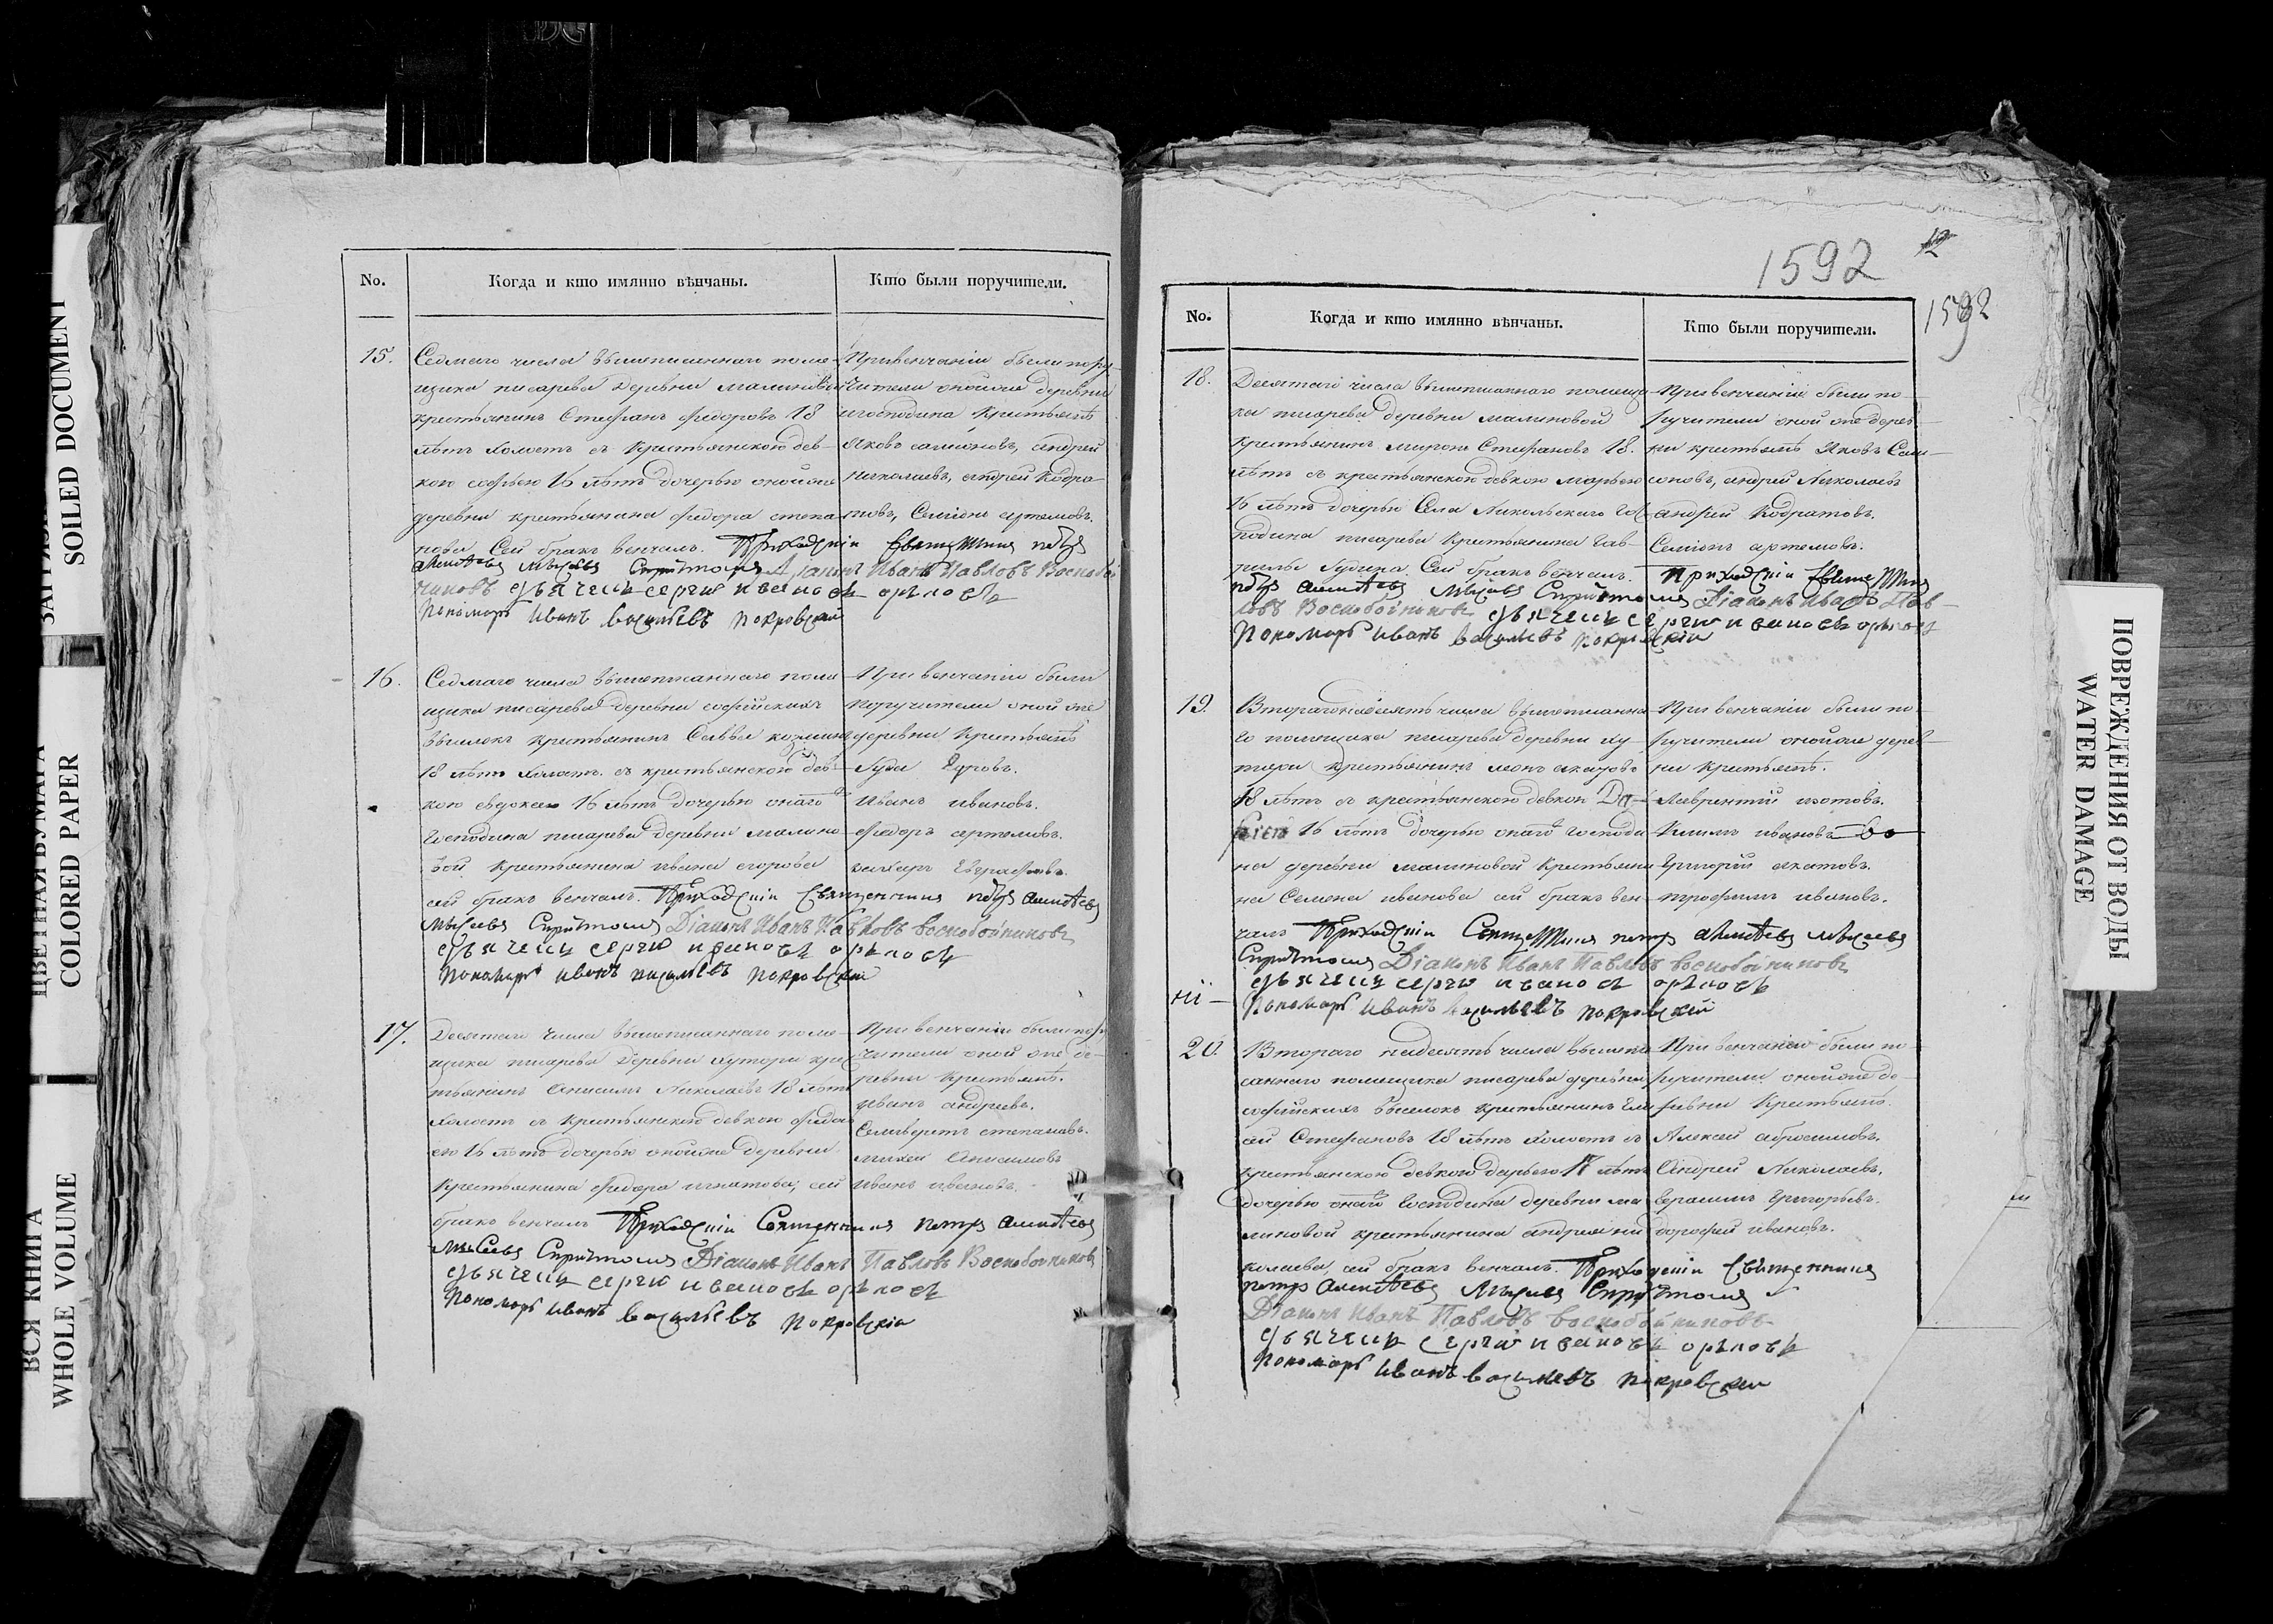 ЗАГРЯЗН
SOILED DOCUMENT
ЦВЕТНАЯ БУМАГА
COLORED PAPER
ВСЯ КНИГА
WHOLE VOLUME
No.
Когда и кто имянно вѣнчаны.
Кто были поручители.
15.
Седмаго числа вышеписаннаго поме-
щика писарева деревни малиновой
крестьянинъ Стефанъ Федоровъ 18
лѣтъ холостъ съ крестьянскою дев-
кою софьею 16 лѣтъ дочерью оной же
деревни крестьянина Федора степа-
нова Сей бракъ венчалъ. Приходскiи Священникъ петръ
Дiаконъ Иванъ Павловъ Воскобой
никовъ дьячекъ сергѣй ивановъ орловъ
Пономарь Иванъ васильевъ покровскiй
При венчанiи были пору-
чители оной же деревни
и господина крестьянѣ
Яковъ самсоновъ, андрей
николаевъ, андрей кодра-
товъ, Семіонъ артемовъ.
16.
Седмаго числа вышеписаннаго поме-
щика писарева деревни софійскихъ
выселокъ крестьянинъ Савва козминъ
18 лѣтъ холостъ. съ крестьянскою дев-
кою евдокею 16 лѣтъ дочерью онаго
Господина писарева деревни малино-
вой крестьянина ивана егорова
сей бракъ венчалъ. Приходскiи Священникъ петръ
Дiаконъ Иванъ Павловъ воскобойниковъ
дьячекъ сергѣй ивановъ орловъ
Пономарь иванъ васильевъ покровскiй
При венчанiи были
поручители оной же
деревни крестьянѣ
Иванъ ивановъ.
Федоръ артемовъ.
захаръ Евграфовъ.
17.
Десятаго числа вышеписаннаго поме-
щика писарева деревни хутора крес
тьянинъ Анисимъ Николаевъ 18 лѣтъ
холостъ съ крестьянскою девкою Федось
ею 16 лѣтъ дочерью оной же деревни
крестьянина Федора игнатова, сей
бракъ венчалъ Приходскiи Священникъ петръ
Дiаконъ Иванъ Павловъ Воскобойниковъ
дьячекъ сергѣй ивановъ орловъ
Пономарь Иванъ васильевъ Покровскiй
При венчанiи были пору
чители оной же де-
ревни крестьянѣ.
иванъ андреевъ.
Селиверстъ степановъ.
михей Анисимовъ
иванъ ивановъ.
1592
12
1592
No.
Когда и кто имянно вѣнчаны.
Кто были поручители.
18.
Десятаго числа вышеписаннаго помещи-
ка писарева деревни малиновой
крестьянинъ миронъ Стефановъ 18.
лѣтъ съ крестьянскою девкою марьею
16 лѣтъ дочерью Села Никольскаго Гос-
подина писарева крестьянина Гав-
рилы Лудина. Сей бракъ венчалъ. Приходскiи Священникъ
петръ Дiаконъ Иванъ Пав-
ловъ Воскобойниковъ дьячекъ сергѣй ивановъ орловъ
Пономарь иванъ васильевъ покровскiй
При венчанiи были по-
ручители оной же дерев-
ни крестьянѣ Яковъ Сам-
соновъ, андрей Николаевъ
андрей кодратовъ.
Семіонъ артемовъ.
19.
Втораго надесять числа вышеписанна-
го помещика писарева деревни ху-
тора крестьянинъ
18 лѣтъ съ крестьянскою девкою Да-
рiею 16 лѣтъ дочерью онаго господи
на деревни малиновой крестьяни
на Семена иванова сей бракъ вен-
чалъ Приходскiи Священникъ петръ
Дiаконъ Иванъ Павловъ воскобойниковъ
дьячекъ сергѣй ивановъ орловъ
Пономарь Иванъ васильевъ покровскiй
При венчанiи были по-
ручители оной же дерев-
ни крестьянѣ.
Лаврентій изотовъ.
Климъ ивановъ
Григорій
трофимъ ивановъ.
20.
Втораго надесять числа вышепи
саннаго помещика писарева деревни
софійскихъ выселокъ крестьянинъ Ели
сей Стефановъ 18 лѣтъ холостъ съ
крестьянскою девкою дарьею 17 лѣтъ
дочерью онаго Господина деревни ма
линовой крестьянина андрея ни
колаева, сей бракъ венчалъ. Приходскiи Священникъ
петръ
Дiаконъ Иванъ Павловъ воскобойниковъ
дьячекъ сергѣй ивановъ орловъ
Пономарь Иванъ васильевъ покровскiй
При венчанiи были по-
ручители оной же де-
ревни крестьянѣ.
Алексей абросимовъ.
Андрей Николаевъ.
Герасимъ Григорьевъ.
дорофей ивановъ.
ПОВРЕЖДЕНИЯ ОТ ВОДЫ
WATER DAMAGE